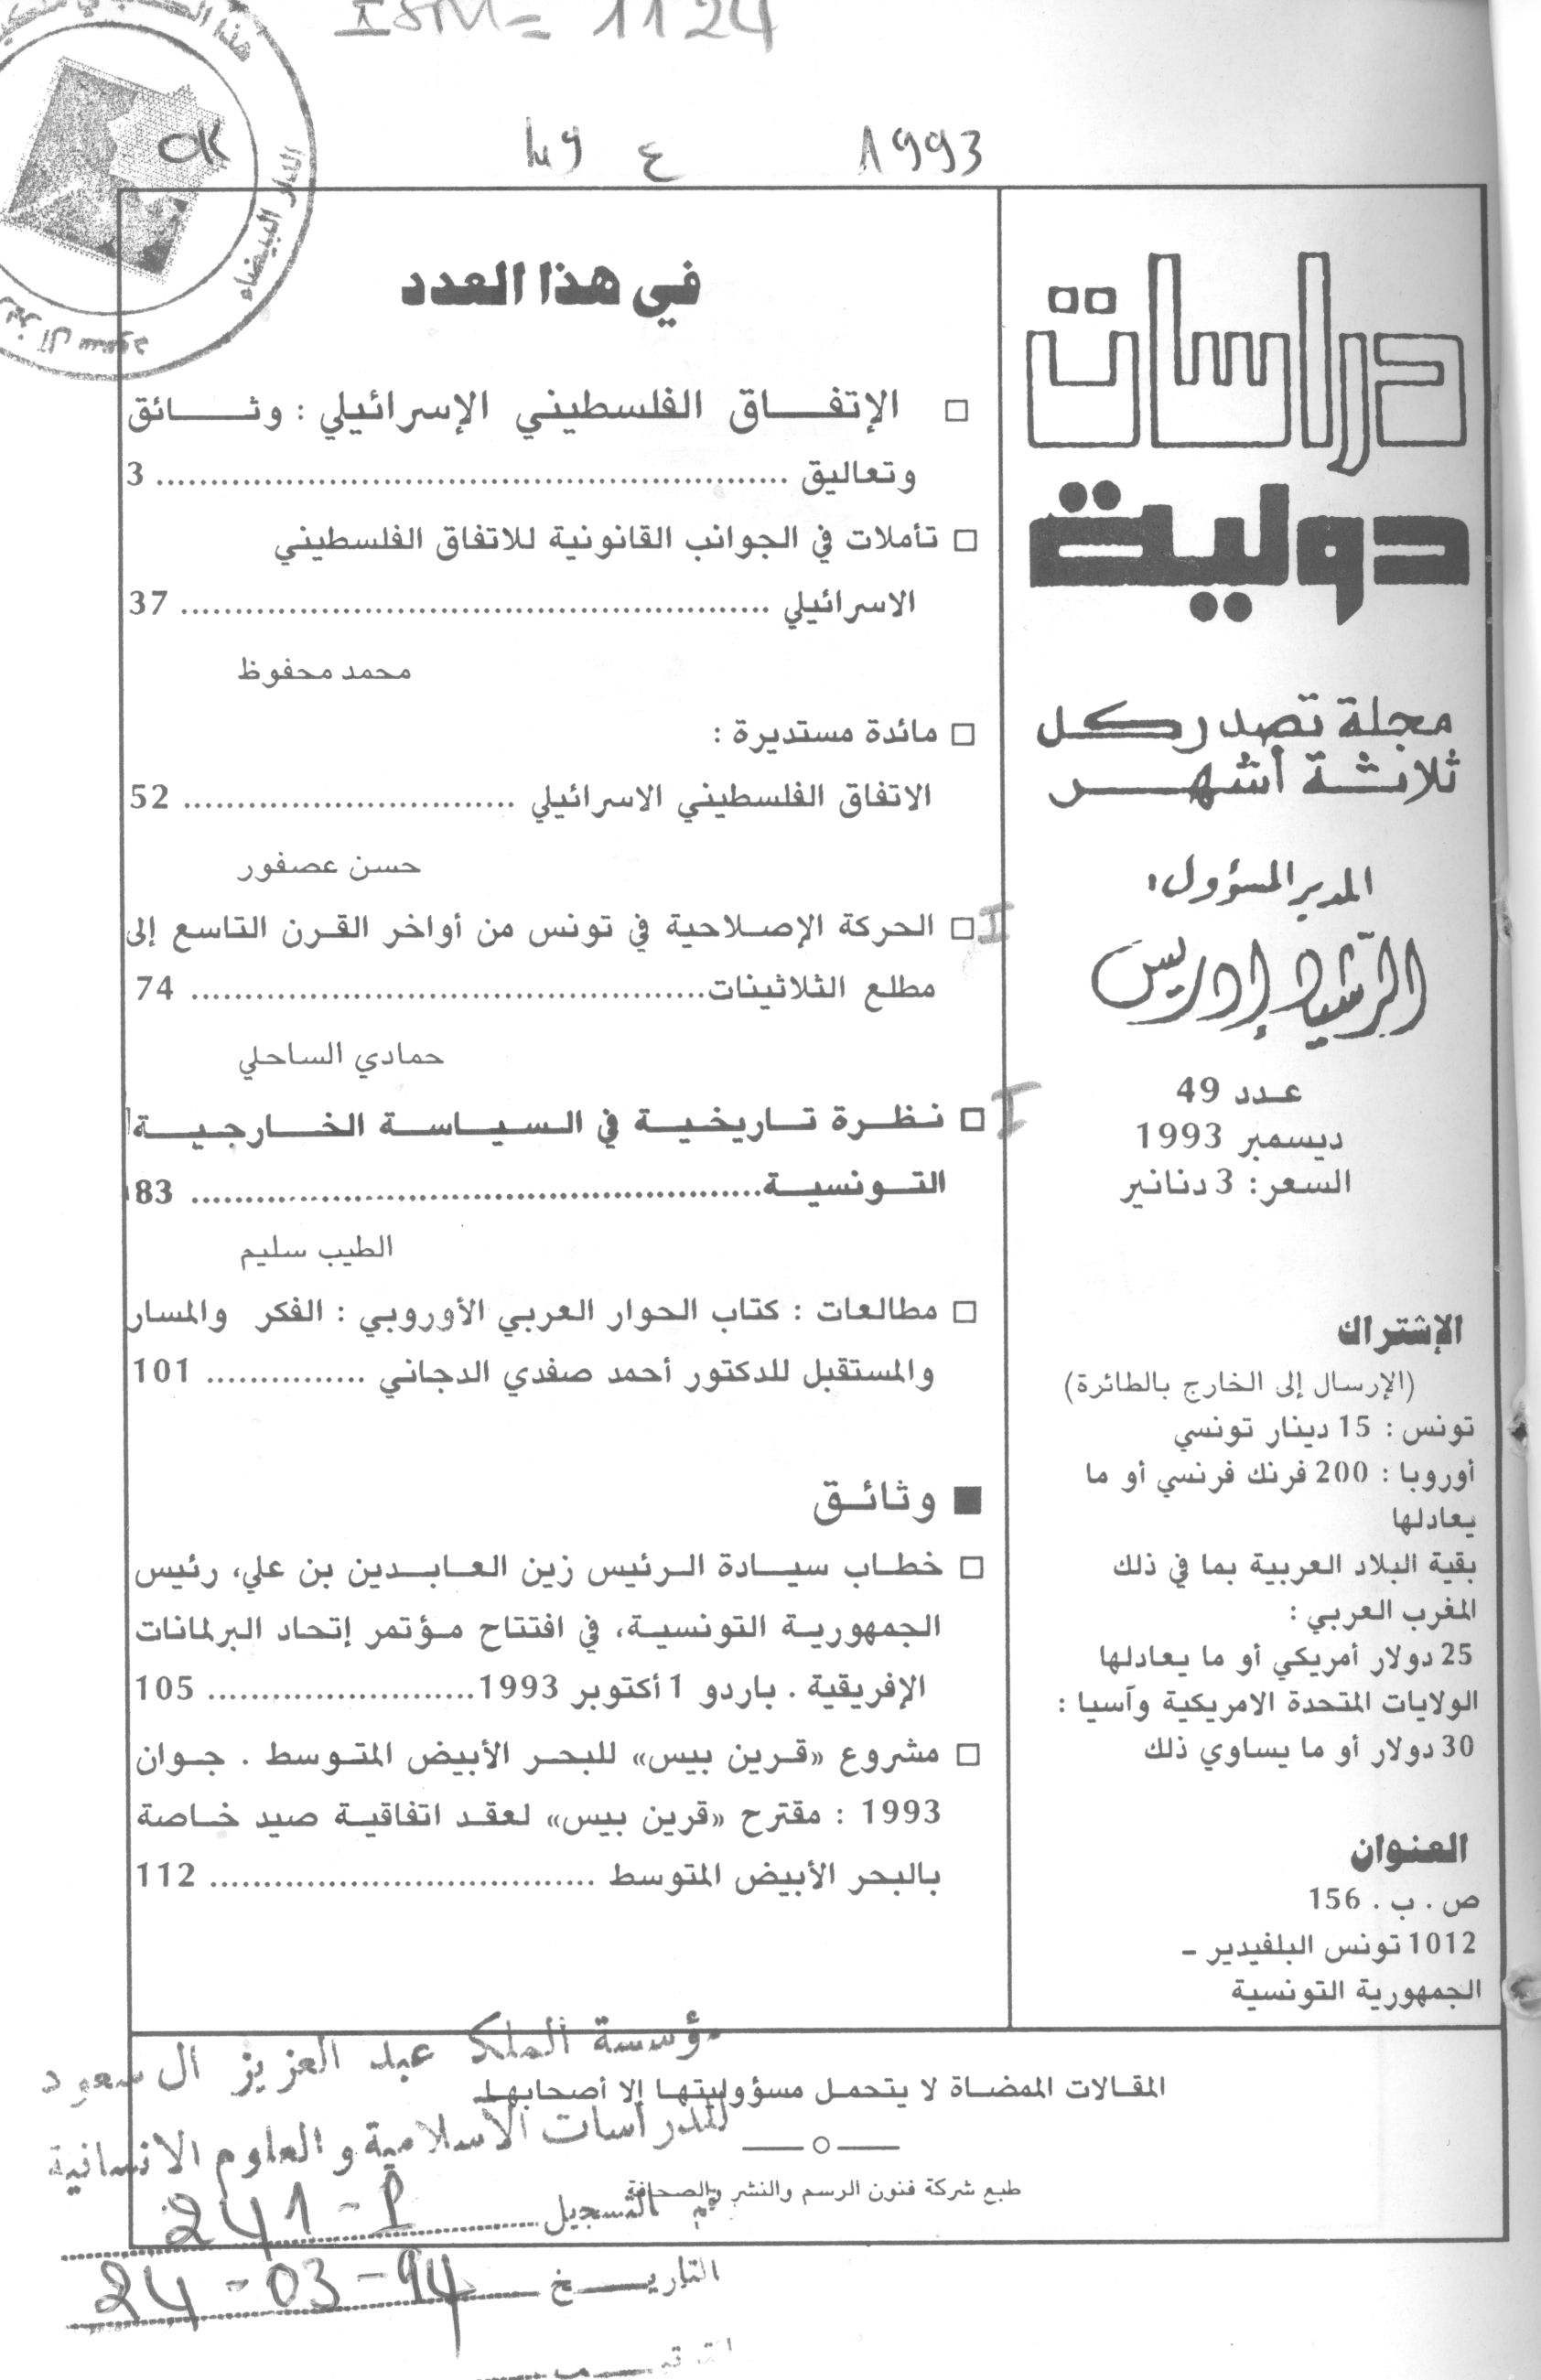 ISM= 1124
49 ع 1993
دراسات
دولية
مجلة تصدر كل
ثلاثة أشهر
المدير المسؤول:
الرّشيد إدريس
عدد 49
ديسمبر 1993
السعر: 3 دنانير
الإشتراك
(الإرسال إلى الخارج بالطائرة)
تونس : 15 دينار تونسي
أوروبا : 200 فرنك فرنسي أو ما
يعادلها
بقية البلاد العربية بما في ذلك
المغرب العربي :
25 دولار أمريكي أو ما يعادلها
الولايات المتحدة الامريكية وآسيا :
30 دولار أو ما يساوي ذلك
العنوان
ص . ب . 156
1012 تونس البلفيدير -
الجمهورية التونسية
في هذا العدد
□ الإتفاق الفلسطيني الإسرائيلي : وثائق
وتعاليق ........................................................ 3
□ تأملات في الجوانب القانونية للاتفاق الفلسطيني
الاسرائيلي ...................................................... 37
محمد محفوظ
□ مائدة مستديرة :
الاتفاق الفلسطيني الاسرائيلي ............................... 52
حسن عصفور
I □ الحركة الإصلاحية في تونس من أواخر القرن التاسع إلى
مطلع الثلاثينات................................................ 74
حمادي الساحلي
I □ نظرة تاريخية في السياسة الخارجية
التونسية..................................................... 83
الطيب سليم
□ مطالعات : كتاب الحوار العربي الأوروبي : الفكر والمسار
والمستقبل للدكتور أحمد صفدي الدجاني ............... 101
■ وثائق
□ خطاب سيادة الرئيس زين العابدين بن علي، رئيس
الجمهورية التونسية، في افتتاح مؤتمر إتحاد البرلمانات
الإفريقية . باردو 1 أكتوبر 1993......................... 105
□ مشروع «قرين بيس» للبحر الأبيض المتوسط . جوان
1993 : مقترح «قرين بيس» لعقد اتفاقية صيد خاصة
بالبحر الأبيض المتوسط .................................... 112
المقالات الممضاة لا يتحمل مسؤوليتها إلا أصحابها
طبع شركة فنون الرسم والنشر والصحافة
مؤسسة الملك عبد العزيز ال سعود
للدراسات الاسلامية و العلوم الانسانية
رقم التسجيل 241-P
التاريخ 24-03-94
OK
الدار البيضاء
آل سعود